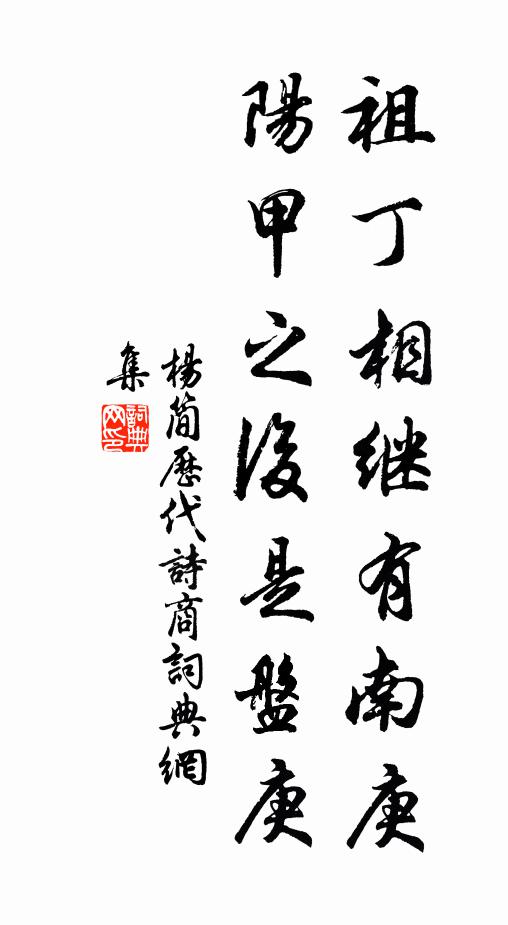 祖丁相继有南庚
陽甲之後是盤庚
楊简歷代詩商詞典網
集
詞典网印